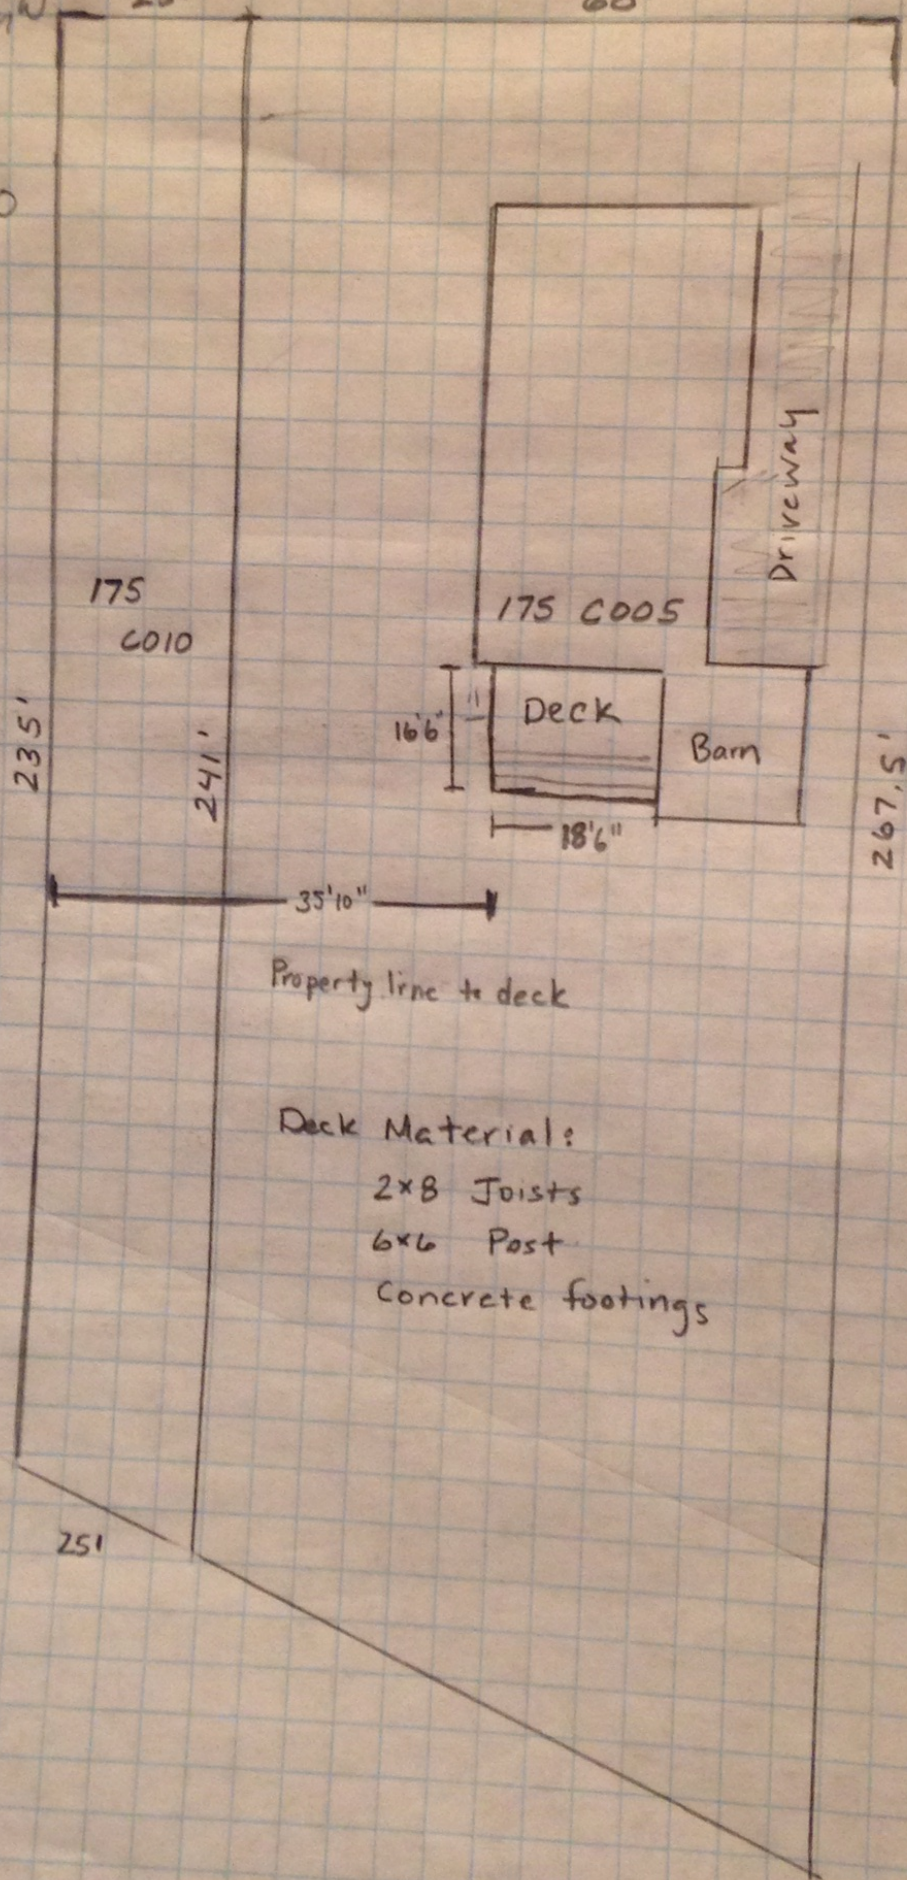 60
175
C010
175 C005
Driveway
Deck
16'6"
Barn
18'6"
235'
241'
267.5'
35'10"
Property line to deck
Deck Material:
2x8 Joists
6x6 Post
Concrete footings
251